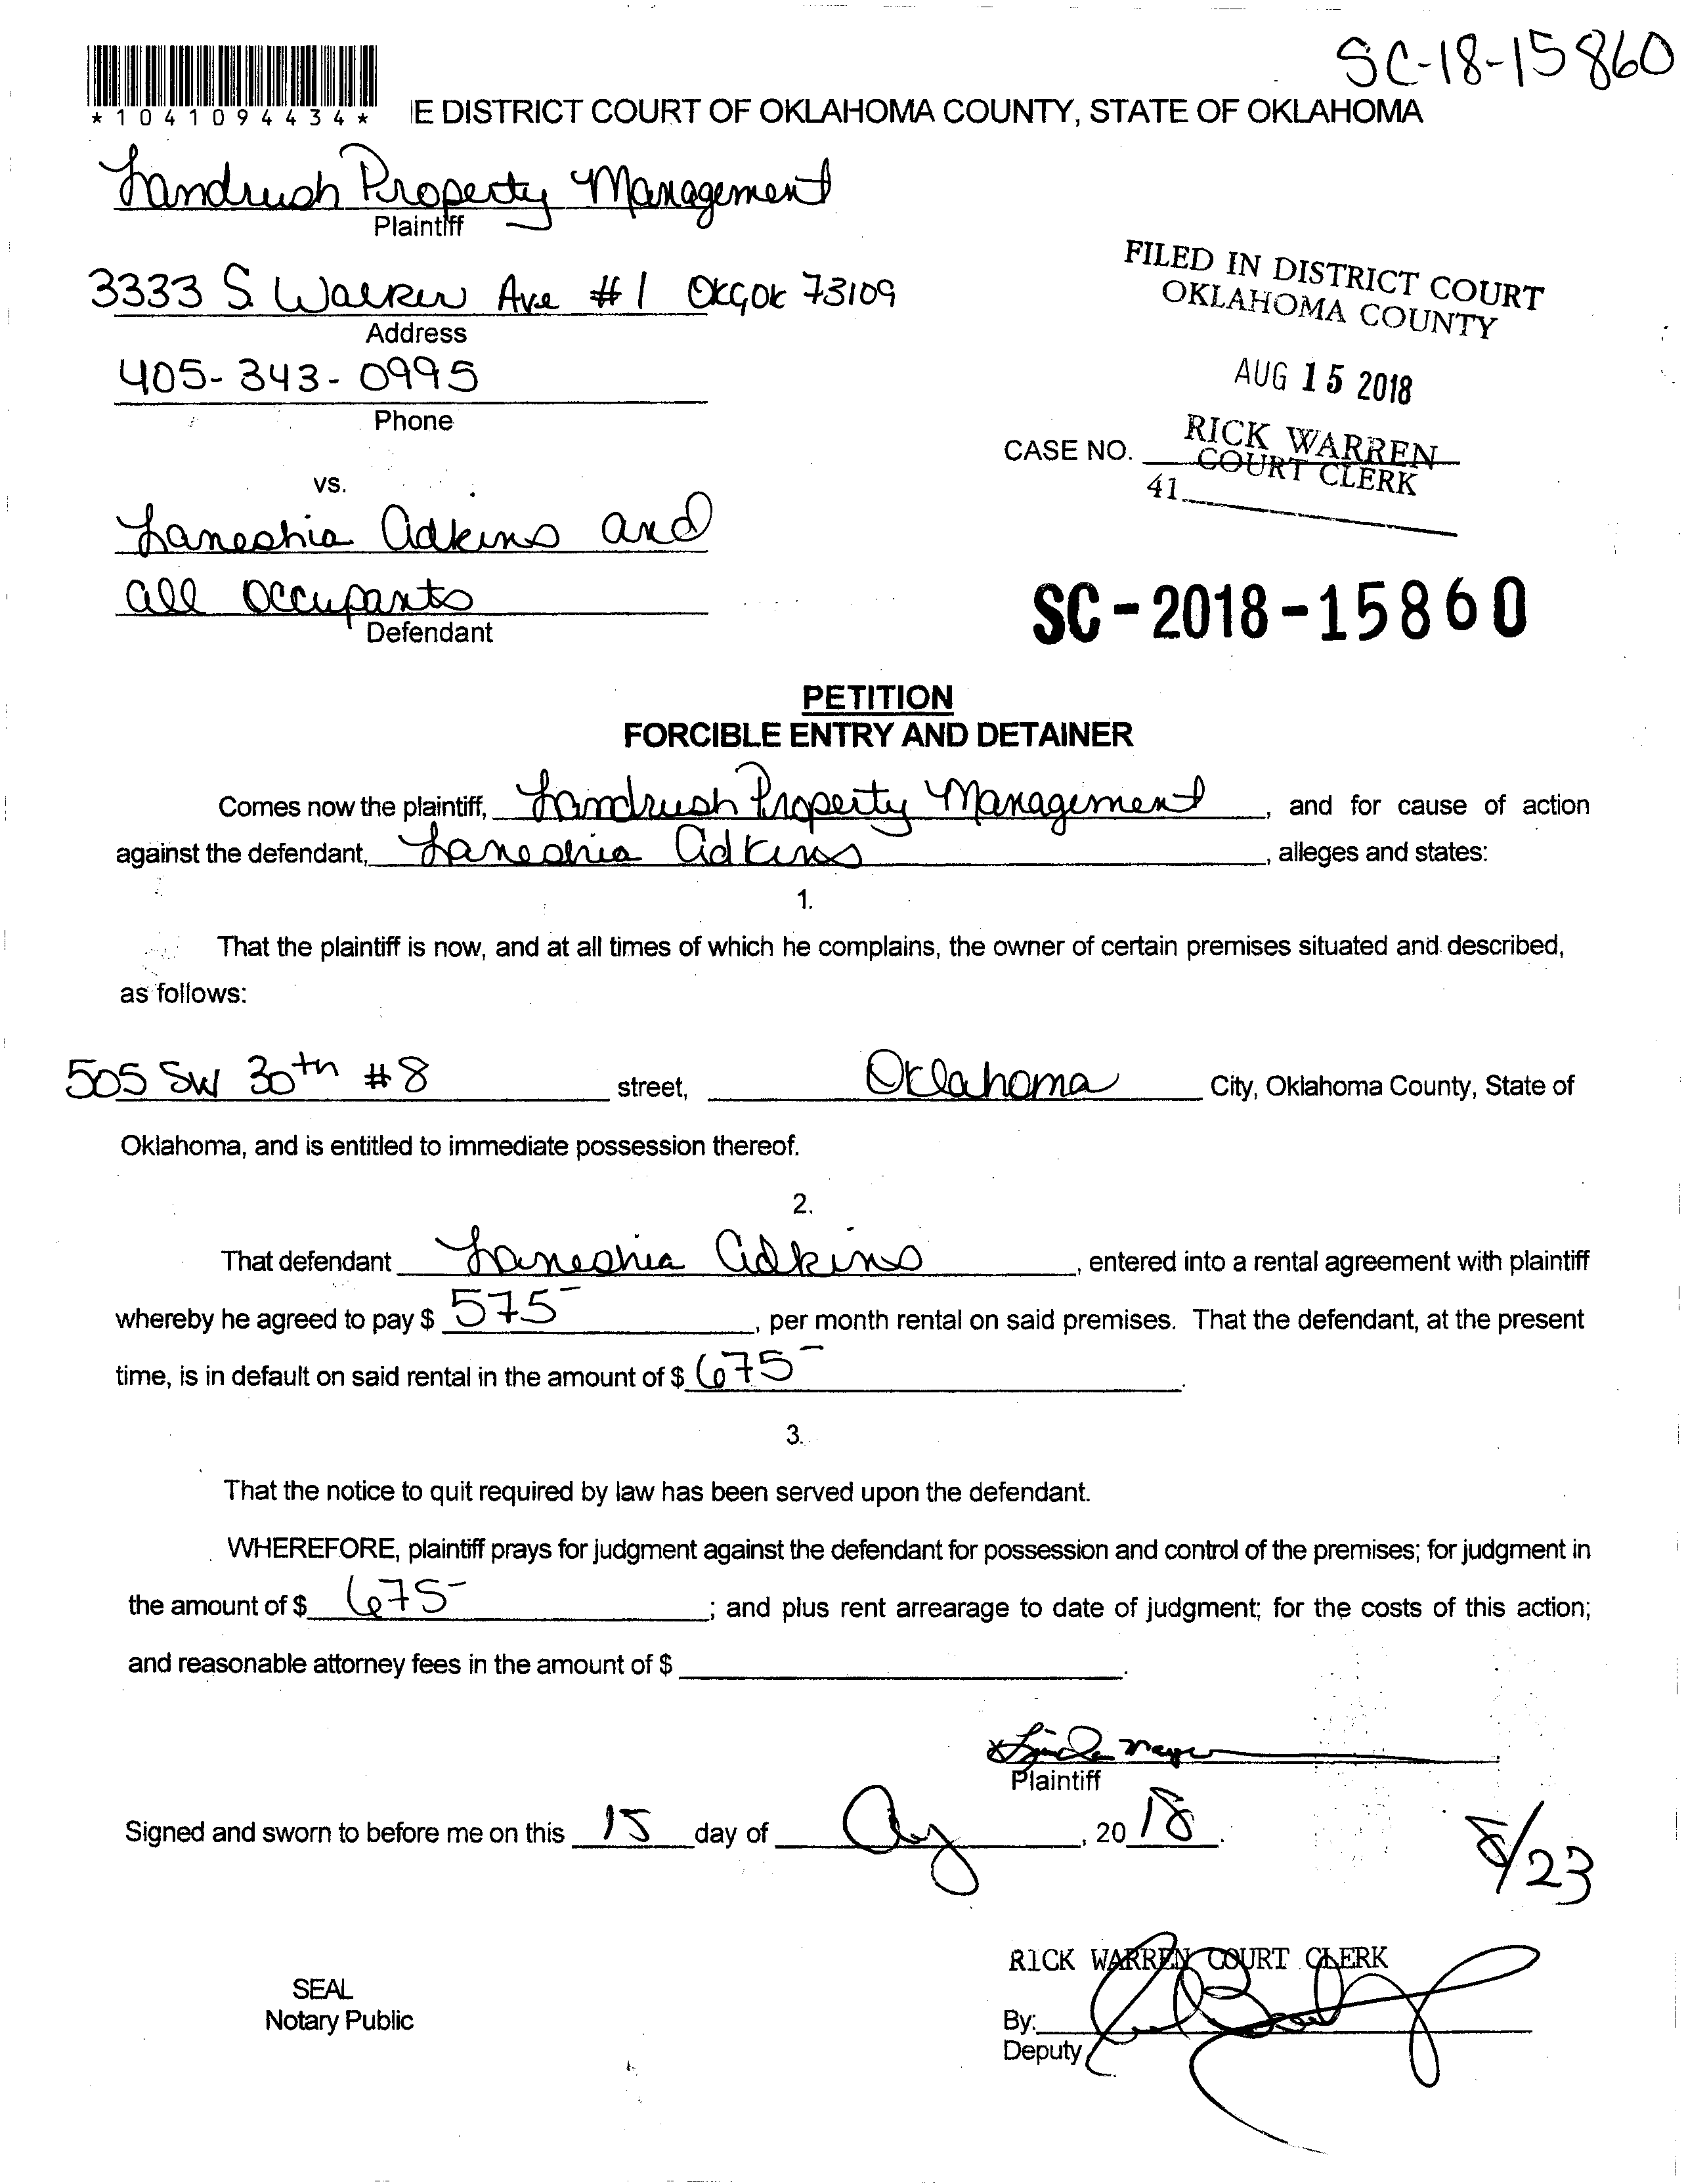 SC-18-15860
*1041094434*
E DISTRICT COURT OF OKLAHOMA COUNTY, STATE OF OKLAHOMA
Landrush Property Management
Plaintiff
3333 S. Walker Ave #1 OKC OK 73109
Address
405-343-0995
Phone
FILED IN DISTRICT COURT
OKLAHOMA COUNTY
AUG 15 2018
RICK WARREN
COURT CLERK
41
CASE NO.
vs.
Laneshia Adkins and
all Occupants
Defendant
SC-2018-15860
PETITION
FORCIBLE ENTRY AND DETAINER
Comes now the plaintiff, Landrush Property Management, and for cause of action
against the defendant, Laneshia Adkins, alleges and states:
1.
That the plaintiff is now, and at all times of which he complains, the owner of certain premises situated and described,
as follows:
505 SW 30th #8 street, Oklahoma City, Oklahoma County, State of
Oklahoma, and is entitled to immediate possession thereof.
2.
That defendant Laneshia Adkins, entered into a rental agreement with plaintiff
whereby he agreed to pay $ 575-, per month rental on said premises. That the defendant, at the present
time, is in default on said rental in the amount of $ 675-.
3.
That the notice to quit required by law has been served upon the defendant.
WHEREFORE, plaintiff prays for judgment against the defendant for possession and control of the premises; for judgment in
the amount of $ 675-; and plus rent arrearage to date of judgment; for the costs of this action;
and reasonable attorney fees in the amount of $ .
Plaintiff
Signed and sworn to before me on this 15 day of Aug, 2018.
8/23
RICK WARREN COURT CLERK
SEAL
Notary Public
By:
Deputy